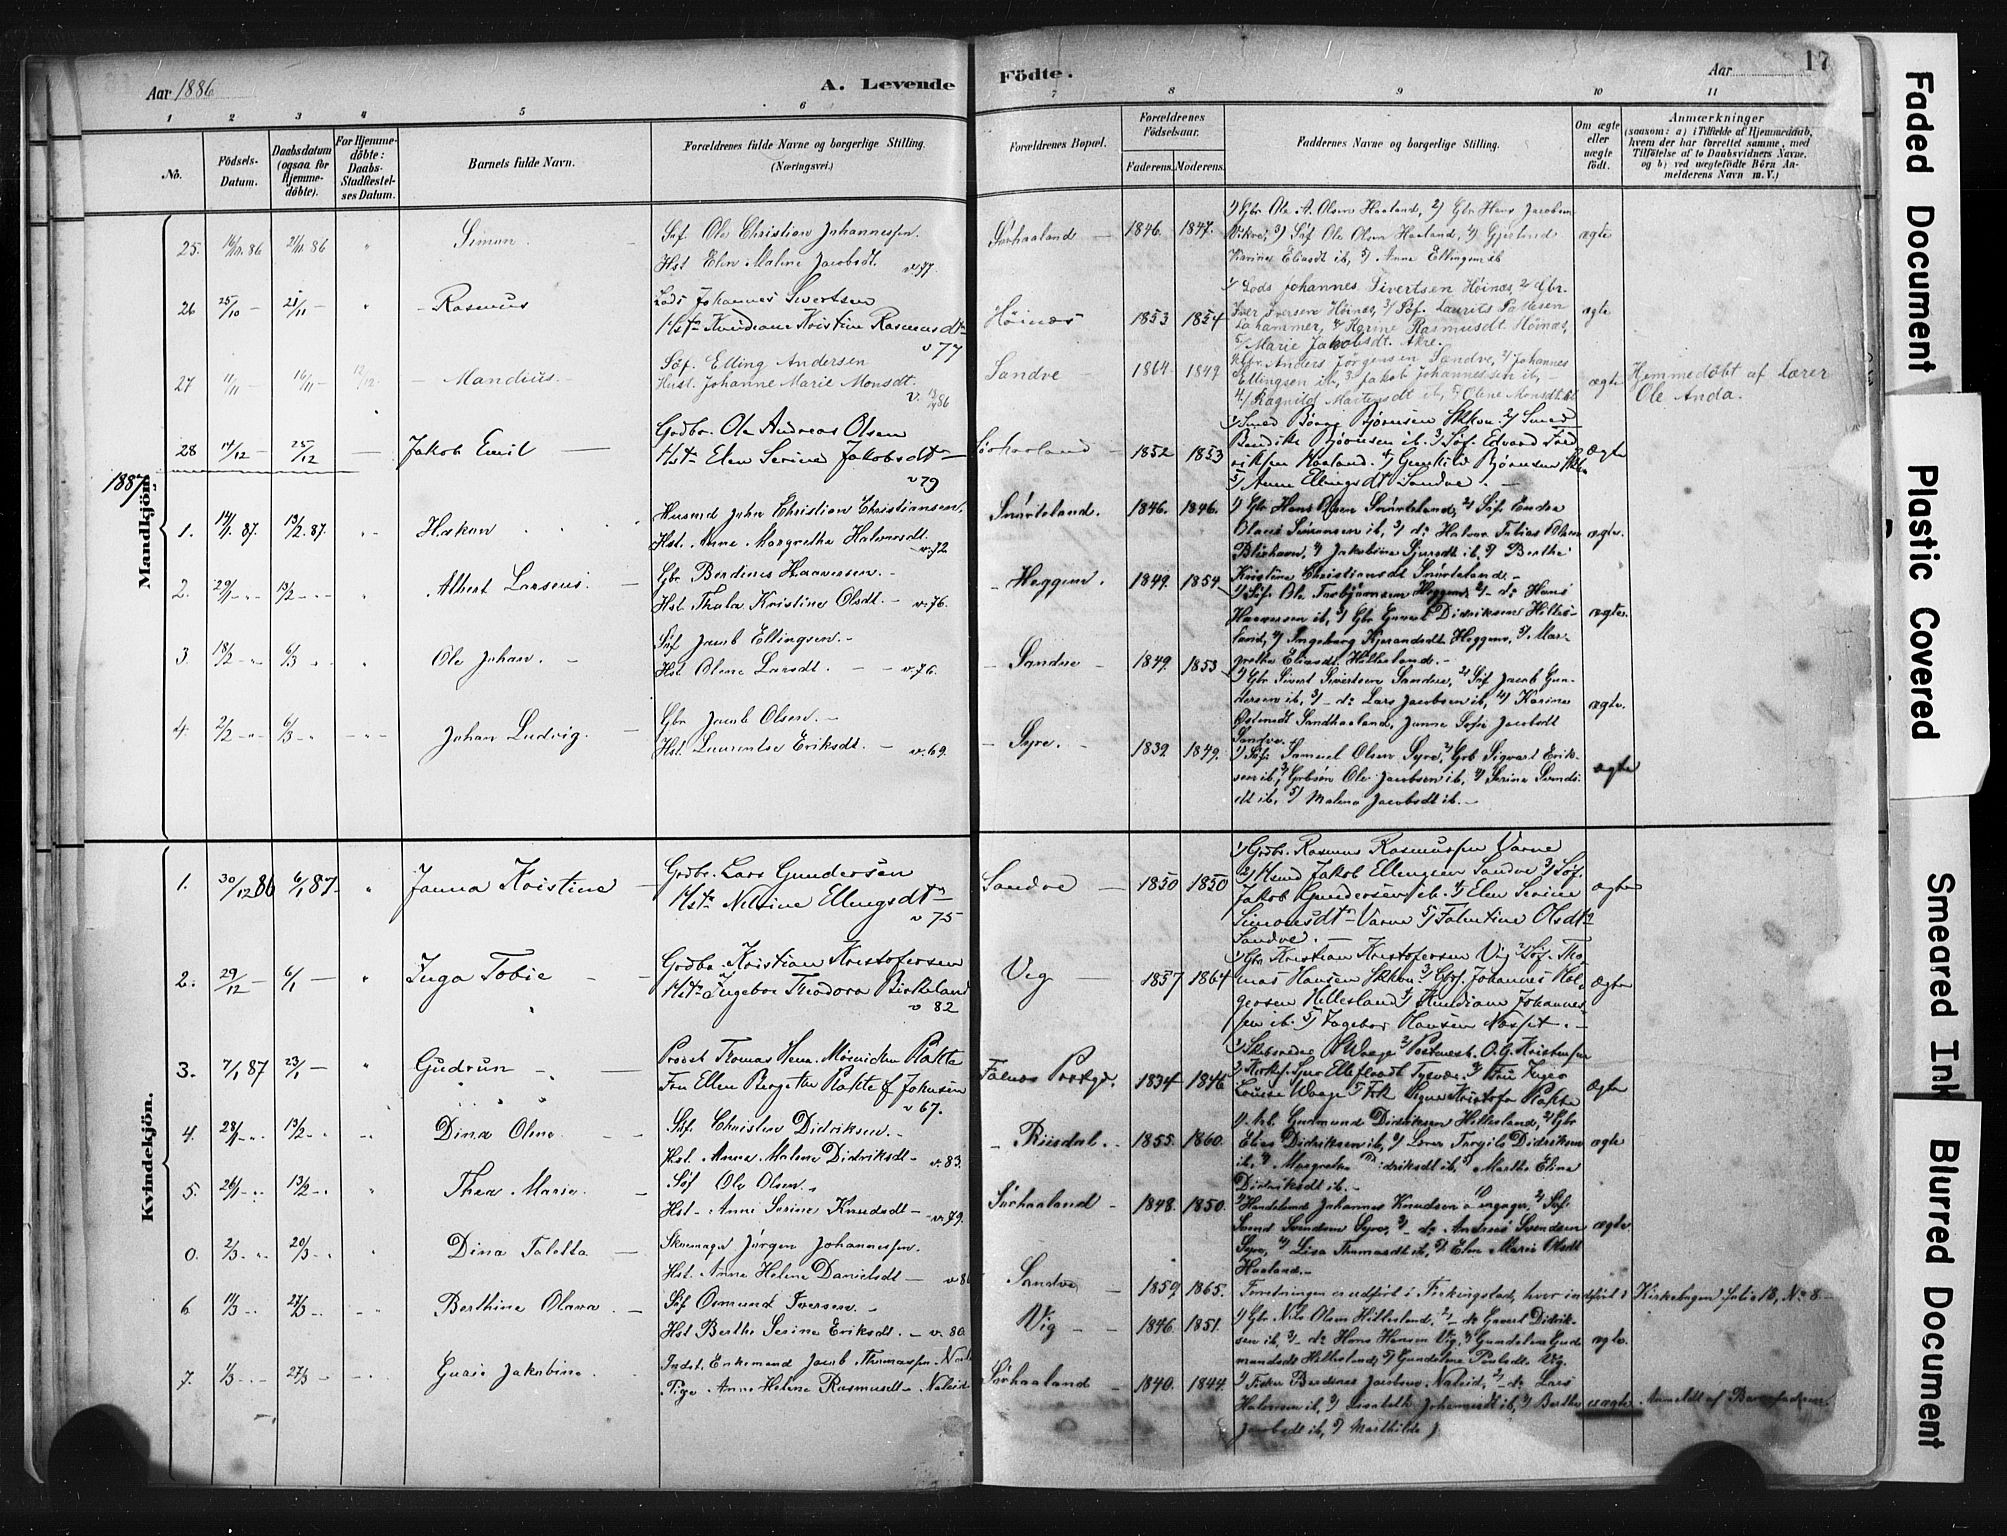 Aar 1886
A. Levende
Födte.
Aar
17
1 2 3 4 5 6 7 8 9 10 11
No.
Födsels-Datum.
Daabsdatum (ogsaa for Hjemme-döbte).
For Hjemme-döbte: Daabs-Stadfæstel-ses Datum.
Barnets fulde Navn.
Forældrenes fulde Navne og borgerlige Stilling. (Næringsvei.)
Forældrenes Bopæl.
Forældrenes Födselsaar.
Faderens. Moderens.
Faddernes Navne og borgerlige Stilling.
Om ægte eller uægte födt.
Anmærkninger
(saasom: a) i Tilfælde af Hjemmedaab, hvem der har forrettet samme, med Tilföielse af to Daabsvidners Navne, og b) ved uægtefödte Börn An-melderens Navn m. V.)
Mandkjön.
25. 86 21/11 86 Simon
Söf. Ole Christian Johannessen.
Hst. Elen Malene Jacobsdt. v. 77.
Sørhaaland 1846. 1847.
1) Gbr Ole A. Olsen Haaland, 2) Gbr Hans Jacobsen
Vikre, 3) Söf Ole Olsen Haaland, 4) Gjertrud
Karine Eliasdt ib, 5) Anne Ellingsen ib
ægte
26 25/10 21/11 Rasmus
Lods Johannes Sivertsen
Hst. Kristine Rasmusdt v 77
Höines 1853 1854
1/ Lods Johannes Sivertsen Höines, 2/ Gbr.
Iver Iversen Höines, 3/ Söf. Laurits Pedersen
Lahammer, 4/ Karine Rasmusdt Höines,
5/ Marie Jakobsdt. Akre.
ægte
27 11/11 16/11 12/12 Mandius
Söf. Elling Andersen
Hust. Johanne Marie Monsdt. v. 86
Sandve 1864 1849
1/ Gbr Anders Jörgensen Sandve, 2/ Johannes
Ellingsen ib, 3/ Jakob Johannessen ib,
4/ Ragnild Martensdt ib, 5/ Olene Monsdt ib
ægte
Hemmedöbt af Lærer
Ole Anda.
28 14/12 25/12 Jakob Emil
Grdbr. Ole Andreas Olsen
Hst. Elen Serine Jakobsdt v 79
Sørhaaland 1852 1853
1/ Smed Børge Bjørnsen 2/ Smed
Bendik Bjørnsen ib. 3/ Söf. Edvard Fred
riksen Haaland. 4/ Gunhild Bjørnsen
5/ Anne Ellingsdt Sandve.
ægte
1887
1. 14/1 87. 13/2 87. Hakon
Husmd John Christian Christiansen,
Hst. Anne Margrethe Halvorsdt. v. 72
Snurteland. 1846. 1846.
1) Gbr Hans Olsen Snurteland, 2) Söf Endre
Olaus Simonsen ib, 3) do Halvor Tobias Olsen
Blixhavn, 4) Jakobine Sjursdt ib, 5) Berthe
Kristine Christiansdt Snurteland.
ægte.
2. 29/1 13/2 Albert Larsens
Gbr Berdines Haaversen.
Hst. Thala Kristine Olsdt. v. 76.
Heggem. 1849. 1854
1) Söf. Ole Torbjørnsen Heggem, 2) do Hans
Haaversen ib, 3) Gbr Gunvel Didriksen Hilles-
land, 4) Ingeborg Hegge, 5) Mar-
grethe Eliasdt. Hillesland.
ægte.
3. 18/2 6/3 Ole Johan.
Söf Jacob Ellingsen.
Hst Olene Larsdt. v. 76.
Sandve 1849. 1853
1) Gbr Sivert Sivertsen Sandve, 2) Söf Jacob Gun-
dersen ib, 3) do Lars Jacobsen ib, 4) Karine
Sandhaaland, Janne Sofie Jacobsdt
Sandve.
ægte.
4. 2/2 6/3 Johan Ludvig.
Gbr Jacob Olsen.
Hst Laurentse Eriksdt. v. 69.
Syre. 1839. 1849.
1) Söf. Samuel Olsen Syre, 2) Grb Sigvart Erik-
sen ib, 3) Grbsøn Ole Jacobsen ib, 4) Serine Svends-
dt ib, 5) Malene Jacobsdt ib.
ægte
Kvindekjön.
1. 30/12 86 6/1 87 Janna Kristine
Grdbr. Lars Gundersen
Hst. Nelsine Ellingsdt v 75
Sandve 1850 1850
1/ Grdbr. Rasmus Rasmussen Varne
2/ Husmd Jakob Ellingsen Sandve 3/ Söf.
Jakob Gundersen ib. 4/ Elen Serine
Simonsdt Varne 5/ Talentine Olsdt
Sandve.
ægte
2. 29/12 6/1 Inga Tobie
Grdbr. Kristian Kristofersen
Hst. Ingebor Theodora Birkeland v 82
Vig 1857 1864
1/ Gbr Kristian Kristofersen Vig 2/ Söf. Tho-
mas Hansen 3/ Johannes Hol
gersen Hillesland 4/ Johannes
sen ib. 5/ Ingebor Hansen
ægte
3. 7/1 87 23/1 Gudrun
Provst Thomas Plahte
Fru Ellen Bergethe Plahte f Johnsen v 67.
Falnes Præstgr. 1834 1846
1/ Skibsreder Waage 2/ Postmest. O. G. Kristensen
3/ Tysvær. 4/ Fru Inger
Louise Waage 5/ Frk Signe Kristofa Plahte
ægte
4. 28/1 13/2 Dina Oline.
Söf. Christen Didriksen.
Hst. Anna Malene Didriksdt v. 83.
Riisdal. 1855. 1860.
1) Gudmund Didriksen Hillesland, 2) Gbr
Elias Didriksen ib, 3) Lærer Torgils Didriksen
ib, 4) Margrethe Didriksdt ib, 5) Marthe Elina
Didriksdt ib.
ægte
5. 26/1 13/2 Thea Marie.
Söf Ole Olsen.
Hst. Anne Serine Knudsdt v. 79.
Sørhaaland 1848. 1850.
1) Handelsmd Johannes Knudsen 2) Söf.
Svend Svendsen Syre, 3) do Andreas Svendsen
Syre, 4) Lisa Thomasdt ib, 5) Elen Marie Olsdt
Haaland.
ægte.
0. 2/3 20/3 Dina Taletta
Skomager Jørgen Johannessen.
Hst. Anne Helene Danielsdt
Sandve 1859 1865.
Forretningen er udført i Ferkingstad, hvor indført i Kirkebogen folio 18, No 8.
6. 11/3 27/3 Berthine Olava.
Söf Osmund Iversen.
Hst Berthe Serine Eriksdt. v. 80.
Vig 1846 1851.
1) Gbr Nils Olsen Hillesland, 2) do Govert Didrik-
sen ib, 3) do Hans Hansen Vig, 4) Gundeline Gud
mundsdt Hillesland, 5) Gundeline Poulsdt Vig.
ægte.
7. 1/3 27/3 Jakobine.
Indst. Enkemand Jacob Thomassen
Pige Anne Helene Rasmusdt
Sørhaaland 1840. 1844.
1) Fisker Berdines Jacobsen 2) do Lars
Halvorsen ib, 3) Lisabeth Johannesdt ib, 4) Berthe
Jacobsdt ib, 5) Marthilde
uægte
Anmeldt af Barnefaderen.
Faded Document
Plastic Covered
Smeared Ink
Blurred Document